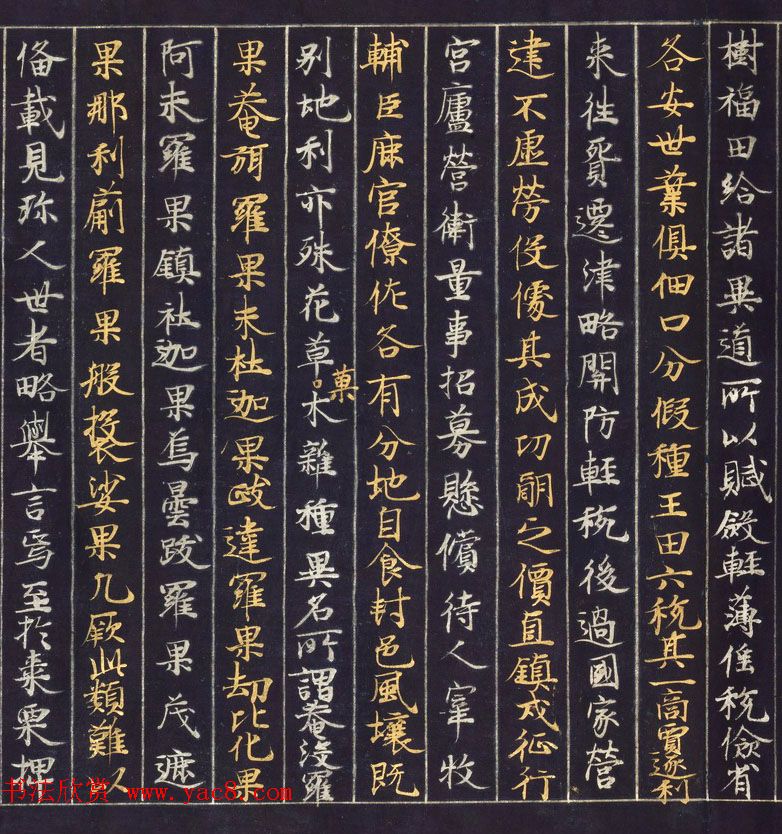 樹福田給諸異道所以賦斂輕薄傜稅儉省
各安世葉俱佃口分假種王田六稅其一商賈逐利
来往貿遷津路關防輕稅後過國家營
建不虛勞役據其成功酬之價直鎮戍征行
宮廬營衛量事招募懸償待人宰牧
輔臣庶官僚佐各有分地自食封邑風壤既
別地利亦殊花草木雜種異名所謂菴沒羅
菓
果菴弭羅果末杜迦果跋達羅果劫比他果
阿末羅果鎮杜迦果烏曇跋羅果茂遮
果那利薊羅果般橠娑果凡厥此類難以
備載見珎人世者略舉言焉至於棗栗椑
书法欣赏 www.yac8.com